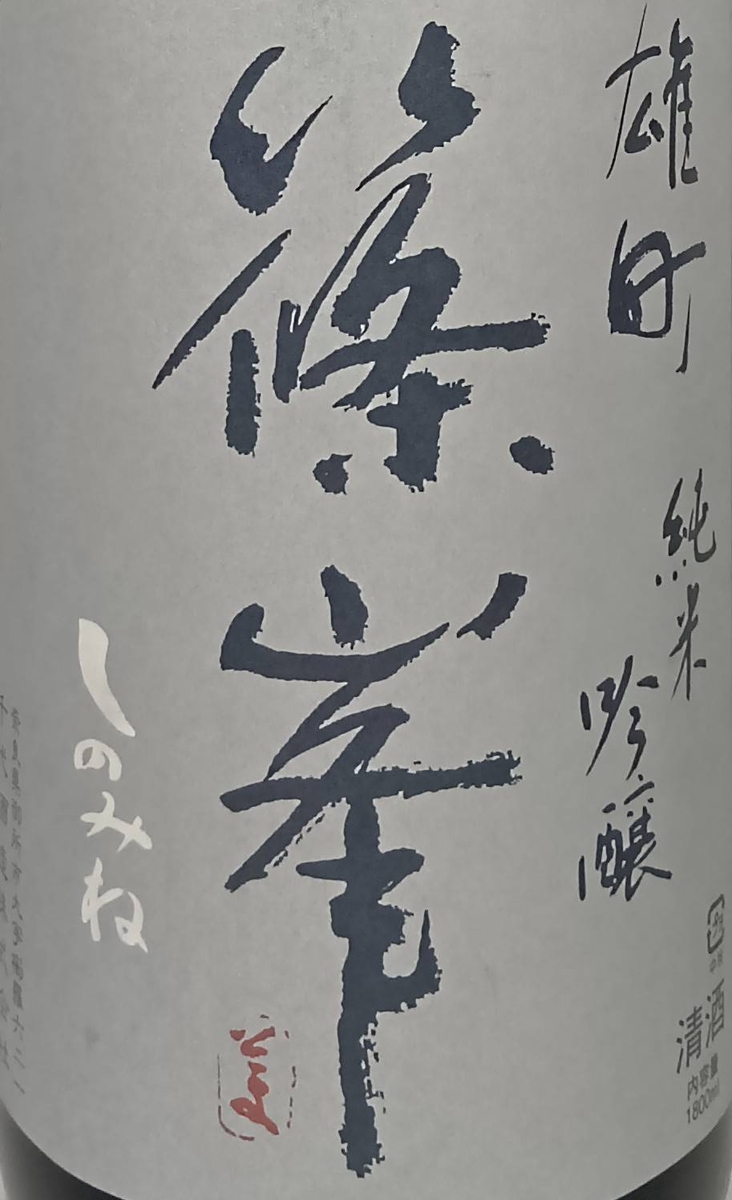 雄町
純米
吟醸
篠峯
しのみね
清酒
内容量
1800ml